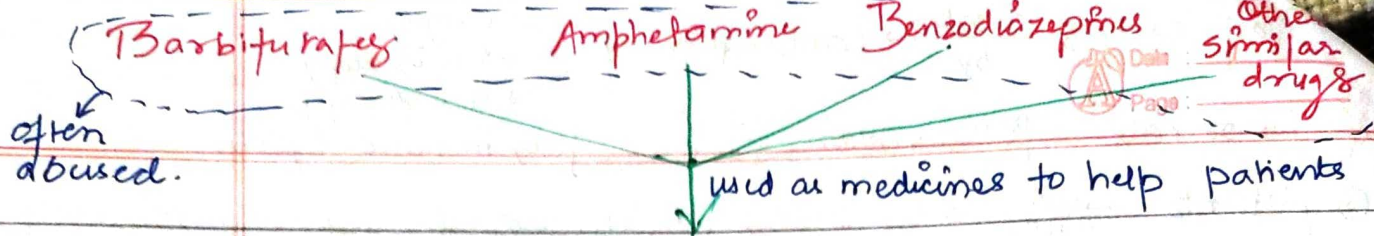 Barbiturates Amphetamine Benzodiazepines Othe
similar
drugs
Date :
Page :
often
abused.
used as medicines to help patients